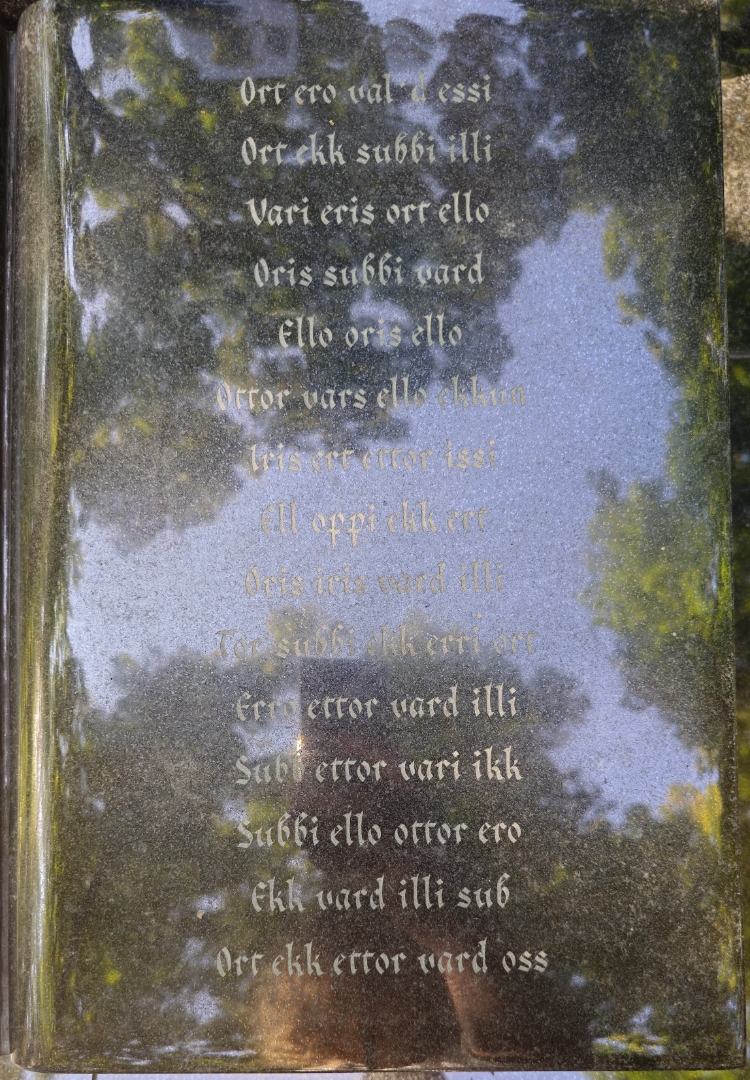 Ort ero val'd essi
Ort ekk subbi illi
Vari eris ort ello
Oris subbi vard
Ello oris ello
Ottor vars ello ekkun
Iris ert ettor issi
Ell oppi ekk ert
Oris iris vard illi
Tor subbi ekk erri ort
Erro ettor vard illi
Subb ettor vari ikk
Subbi ello ottor ero
Ekk vard illi sub
Ort ekk ettor vard oss